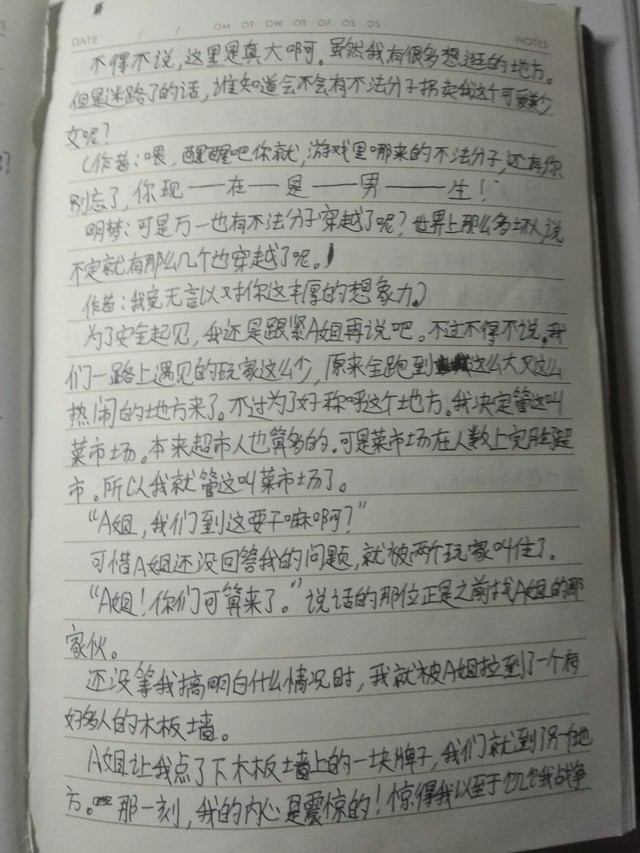 DATE / / OM OT OW OT OF OS OS NOTES
不得不说，这里是真大啊。虽然我有很多想逛的地方。
但是迷路了的话，谁知道会不会有不法分子拐卖我这个可爱美少
女呢？
（作者：喂，醒醒吧你就，游戏里哪来的不法分子，还有你
别忘了，你现——在——是——男——生！
明梦：可是万一也有不法分子穿越了呢？世界上那么多坏人，说
不定就有那么几个也穿越了呢。）
作者：我竟无言以对你这丰厚的想象力。）
为了安全起见，我还是跟紧A姐再说吧。不过不得不说，我
们一路上遇见的玩家这么少，原来全跑到这么大又这么
热闹的地方来了。不过为了好称呼这个地方。我决定管这叫
菜市场。本来超市人也算多的，可是菜市场在人数上完胜超
市。所以我就管这叫菜市场了。
“A姐，我们到这要干嘛啊？”
可惜A姐还没回答我的问题，就被两个玩家叫住了。
“A姐！你们可算来了。”说话的那位正是之前找A姐的那
家伙。
还没等我搞明白什么情况时，我就被A姐拉到了一个有
好多人的木板墙。
A姐让我点了下木板墙上的一块牌子，我们就到了另一个地
方。那一刻，我的内心是震惊的！惊得我以至于